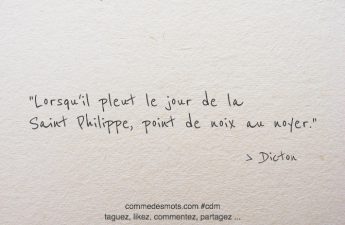 "Lorsqu'il pleut le jour de la
Saint Philippe, point de noix au noyer."
> Dicton
commedesmots.com #cdm
taguez, likez, commentez, partagez ...